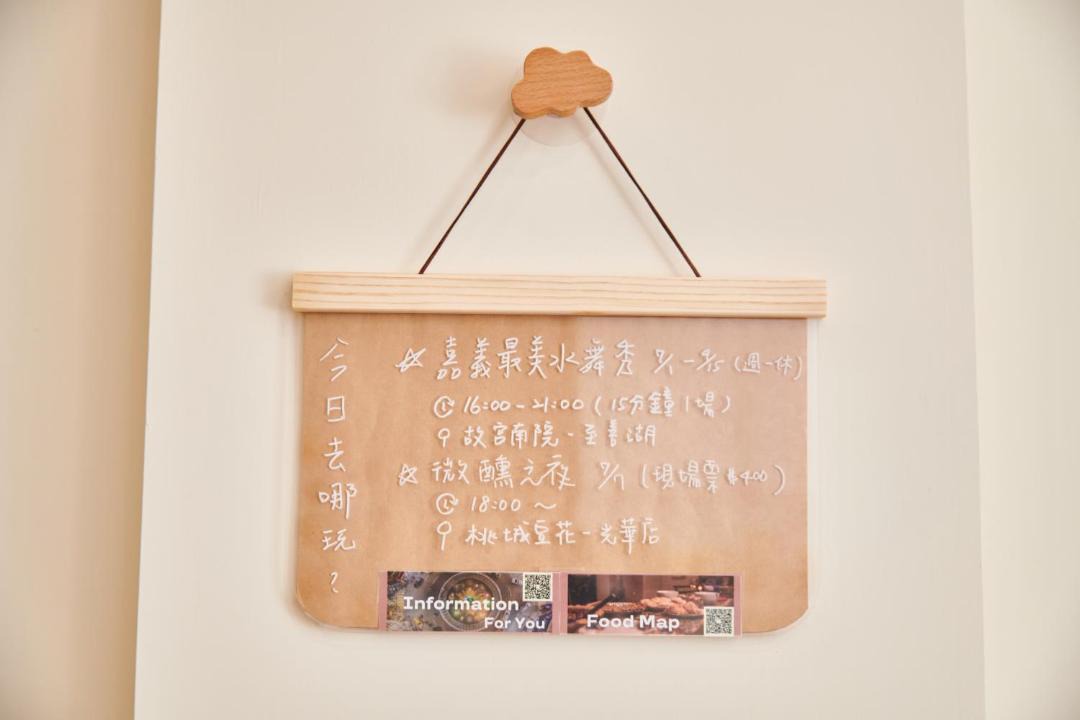 今日去哪玩?
☆ 嘉義最美水舞秀 7/1-9/15 (週一休)
16:00-21:00 (15分鐘1場)
故宮南院-至善湖
☆ 微醺之夜 7/17 (現場票$400)
18:00 ~
桃城豆花-光華店
Information
For You
Food Map